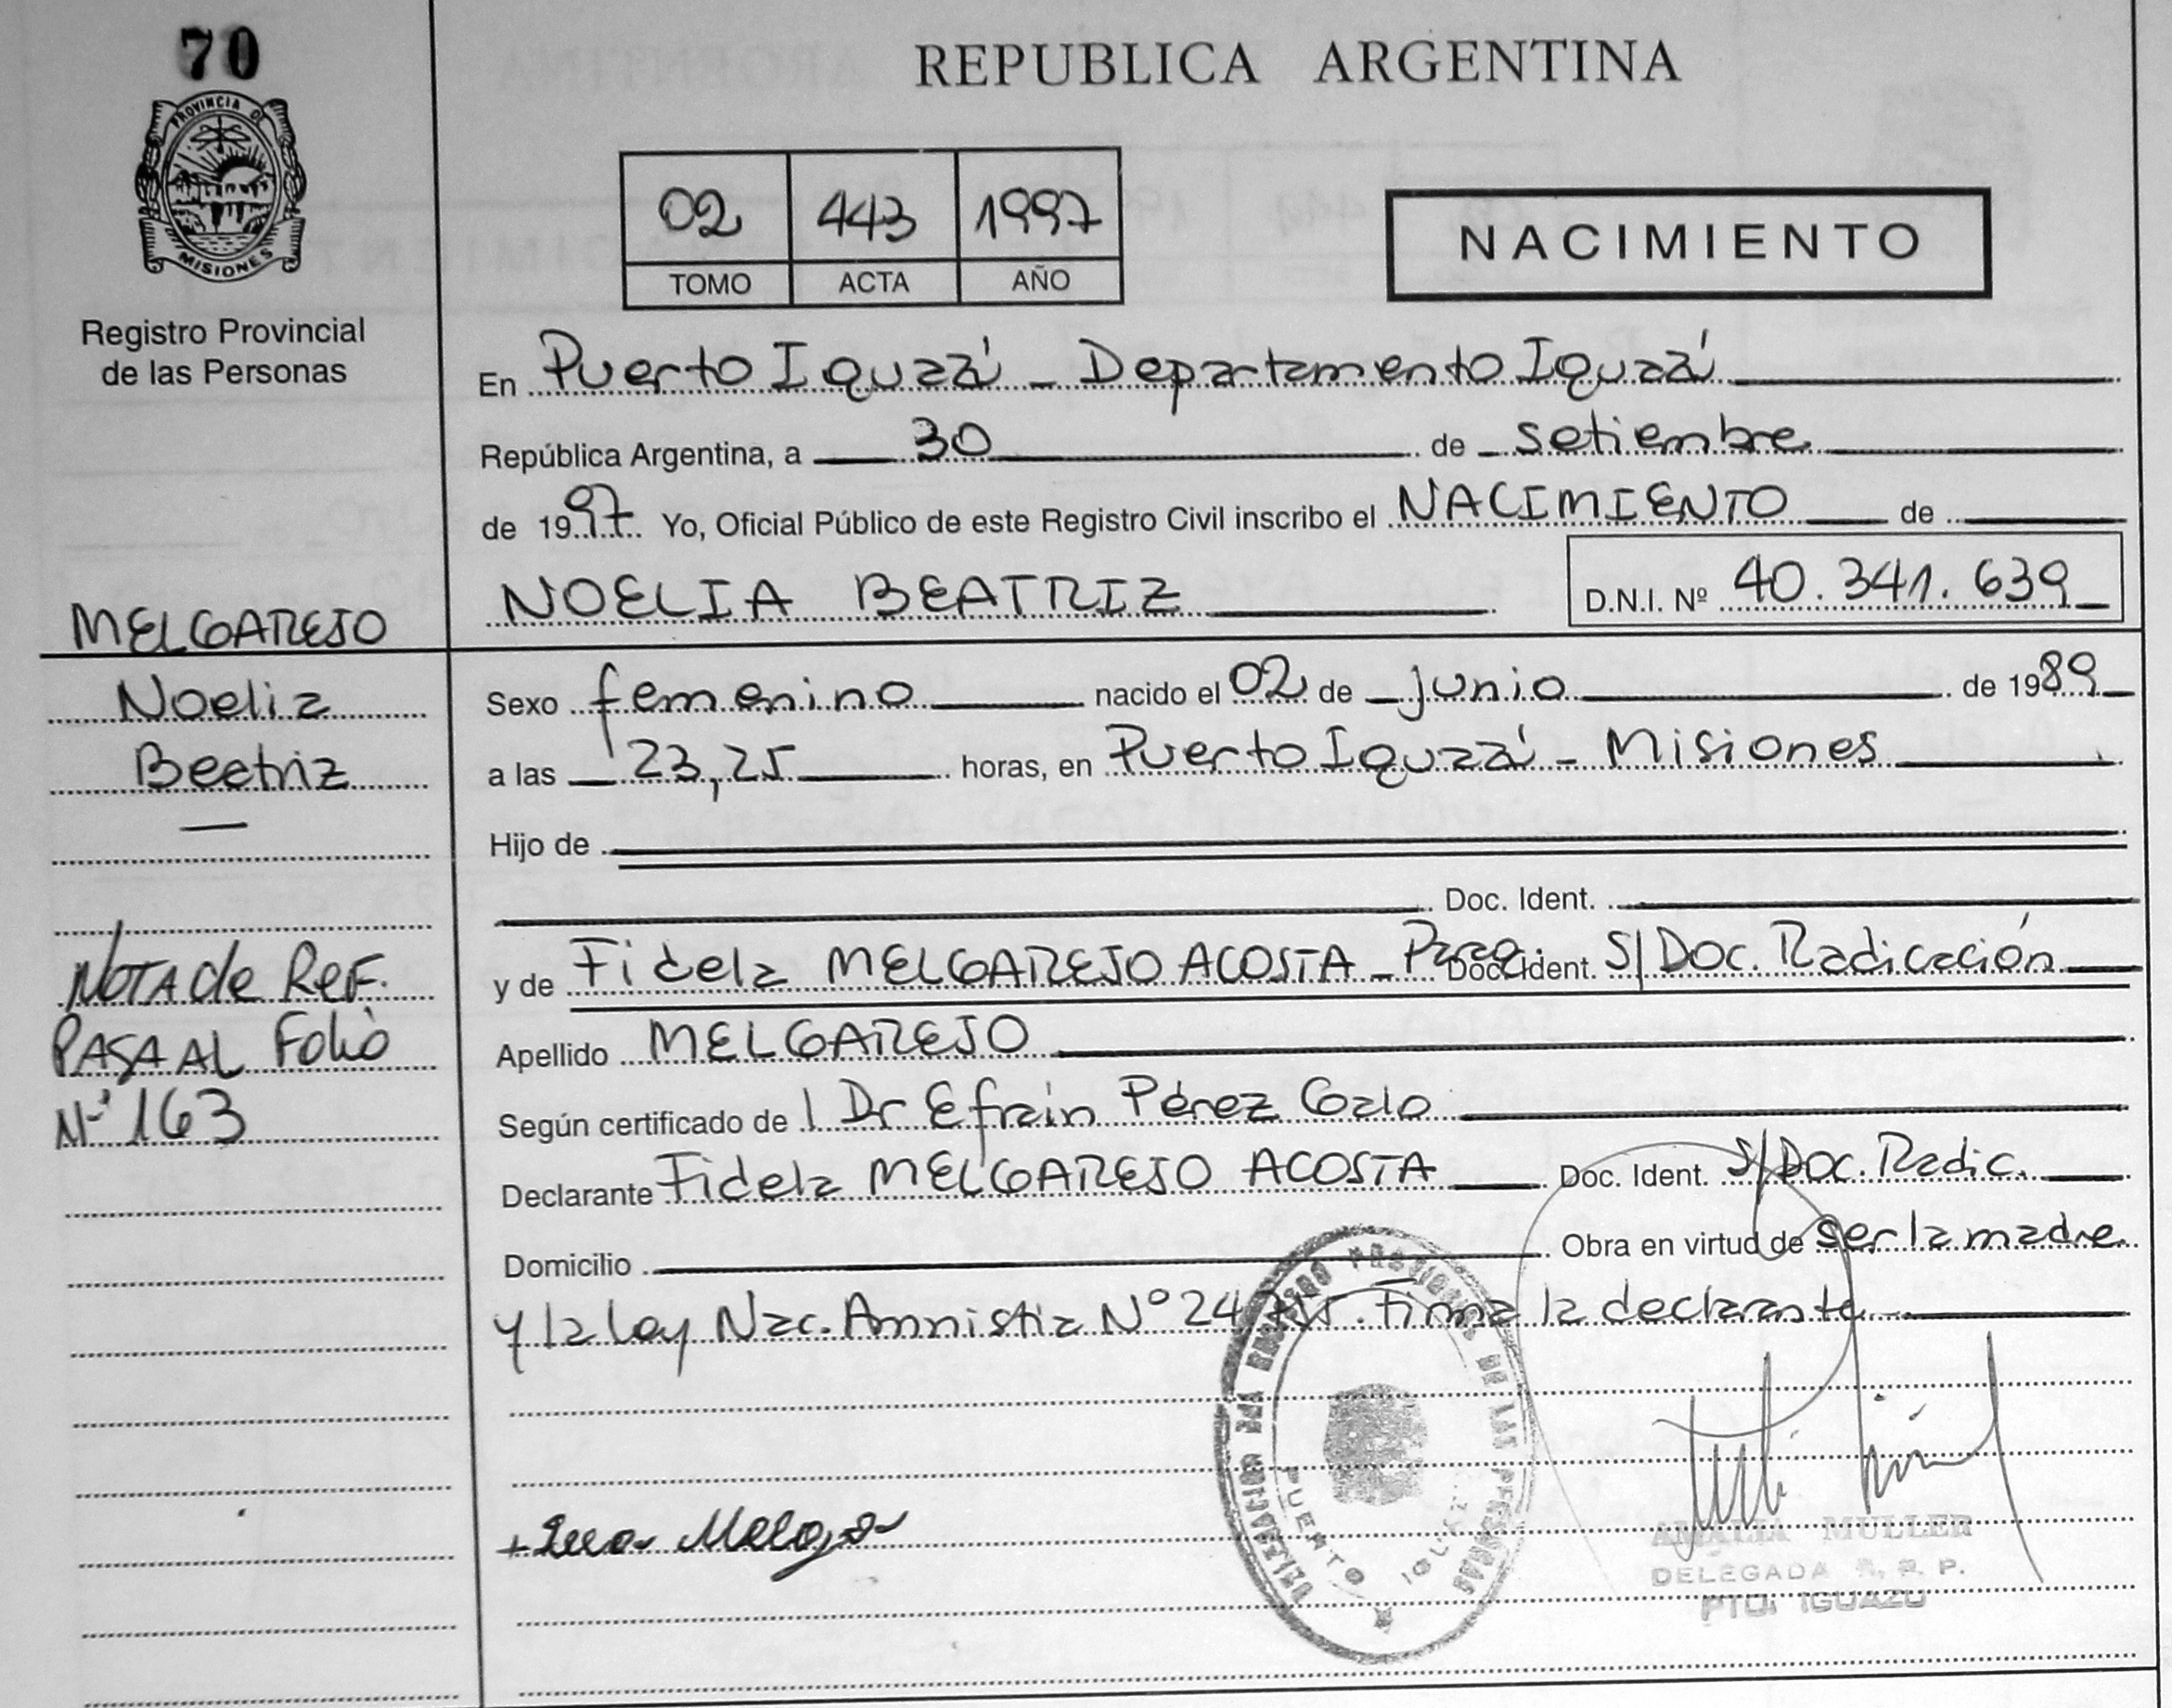 70
PROVINCIA DE
MISIONES
Registro Provincial
de las Personas
REPUBLICA ARGENTINA
02 443 1997
TOMO ACTA AÑO
NACIMIENTO
En Puerto Iguazú - Departamento Iguazú
República Argentina, a 30 de setiembre
de 1997. Yo, Oficial Público de este Registro Civil inscribo el NACIMIENTO de
NOELIA BEATRIZ D.N.I. Nº 40.341.639
MELGAREJO
Noelia
Beatriz
Sexo femenino nacido el 02 de junio de 1989
a las 23,25 horas, en Puerto Iguazú - Misiones
Hijo de
Doc. Ident.
y de Fidela MELGAREJO ACOSTA - Parag. Doc. Ident. S/Doc. Radicación
Apellido MELGAREJO
Según certificado de l Dr Efrain Pérez
Declarante Fidela MELGAREJO ACOSTA Doc. Ident. S/Doc. Radic.
Domicilio Obra en virtud de ser la madre
y la Ley Nac. Amnistia Nº 24 Firma la declarante
NOTA de REF.
PASA AL Folio
Nº 163
REGISTRO PROVINCIAL DE LAS PERSONAS
PUERTO
AMALIA MULLER
DELEGADA R. P.
PTO. IGUAZU